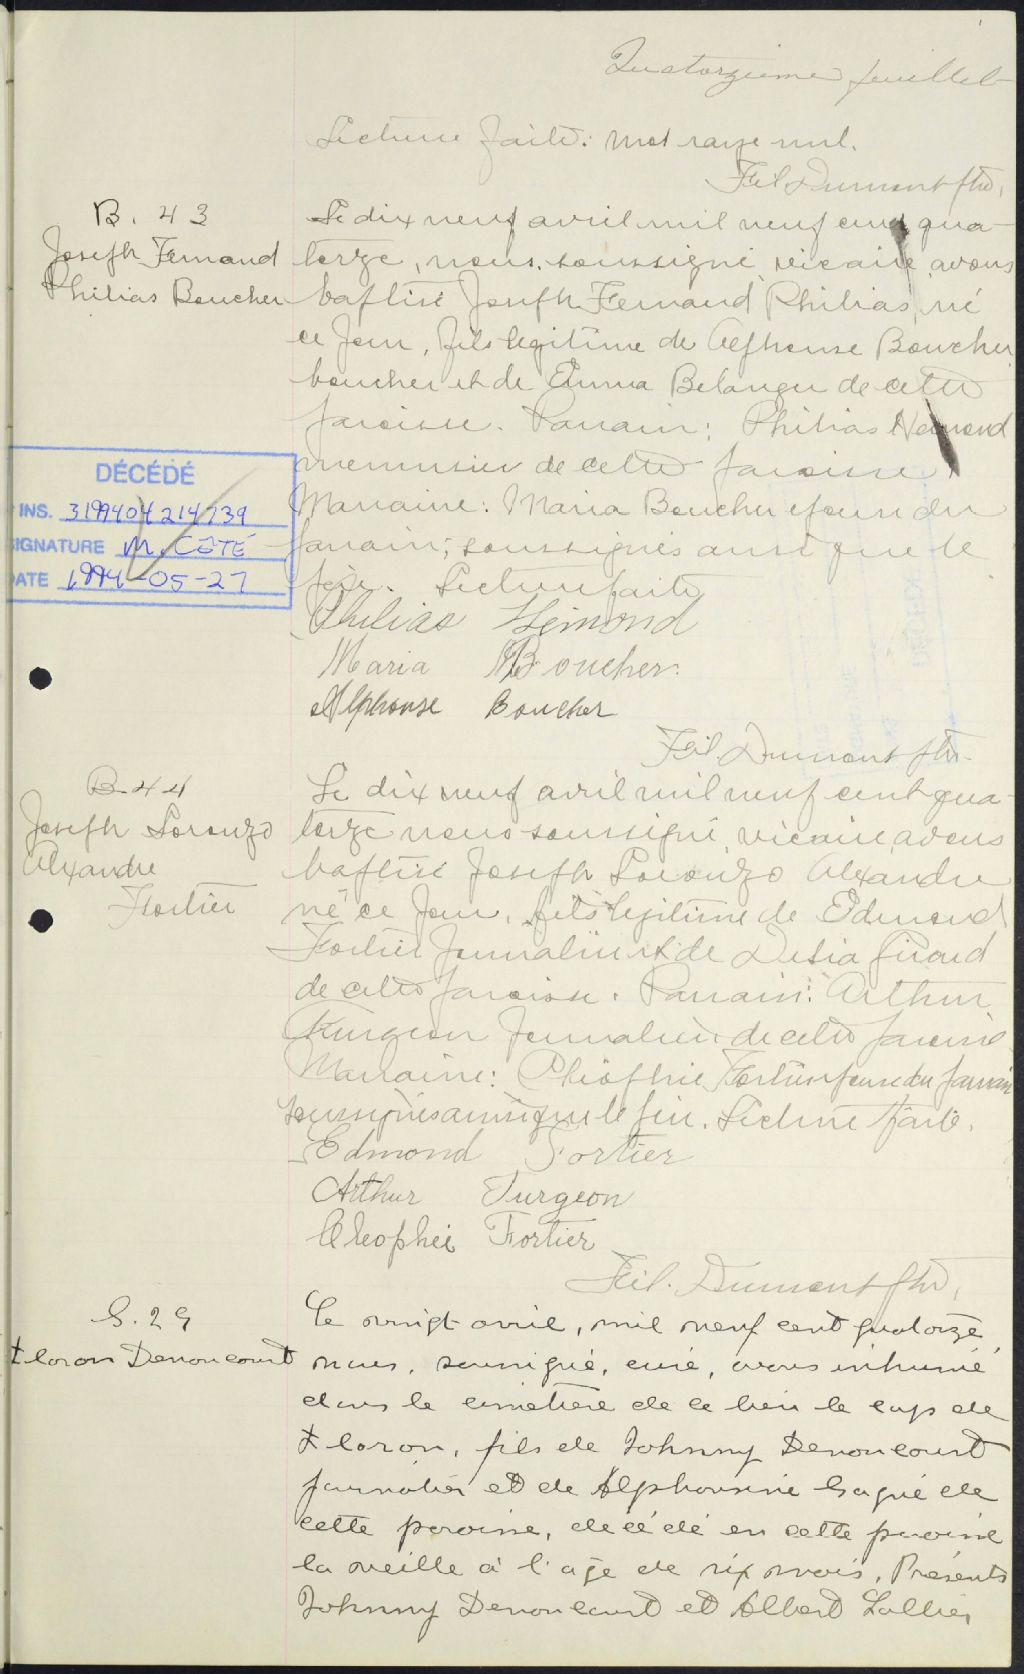 Quatorzième feuillet
Lecture faite: mot rayé nul.
Fél. Dumont ptre,
B. 43
Joseph Fernand
Philias Boucher
Le dix neuf avril mil neuf cent qua-
torze, nous, soussigné, vicaire, avons
baptisé Joseph Fernand Philias, né
ce jour, fils légitime de Alphonse Boucher
boucher et de Emma Belanger de cette
paroisse. Parrain: Philias Hémond
menuisier de cette paroisse,
Marraine: Maria Boucher épouse du
parrain; soussignés ainsi que le
père. Lecture faite
DÉCÉDÉ
INS. 3199404214739
SIGNATURE M. CÔTÉ
DATE 1994-05-27
Philias Hémond
Maria Boucher.
Alphonse Boucher
Fél. Dumont ptre.
B. 44
Joseph Lorenzo
Alexandre
Fortier
Le dix neuf avril mil neuf cent qua-
torze nous soussigné, vicaire, avons
baptisé Joseph Lorenzo Alexandre
né ce jour, fils légitime de Edmond
Fortier journalier et de Giroud
de cette paroisse. Parrain: Arthur
Turgeon journalier de cette paroisse
Marraine: Cléophie Fortier épouse du parrain
soussignés ainsi que le père. Lecture faite.
Edmond Fortier
Arthur Turgeon
Cleophée Fortier
Fél. Dumont ptre,
S. 29
Floron Denoncourt
Le vingt avril, mil neuf cent quatorze,
nous, soussigné, curé, avons inhumé
dans le cimetière de ce lieu le corps de
Floron, fils de Johnny Denoncourt
journalier et de Alphonsine Gagné de
cette paroisse, décédé en cette paroisse
la veille à l'age de six mois. Présents
Johnny Denoncourt et Albert Lallier